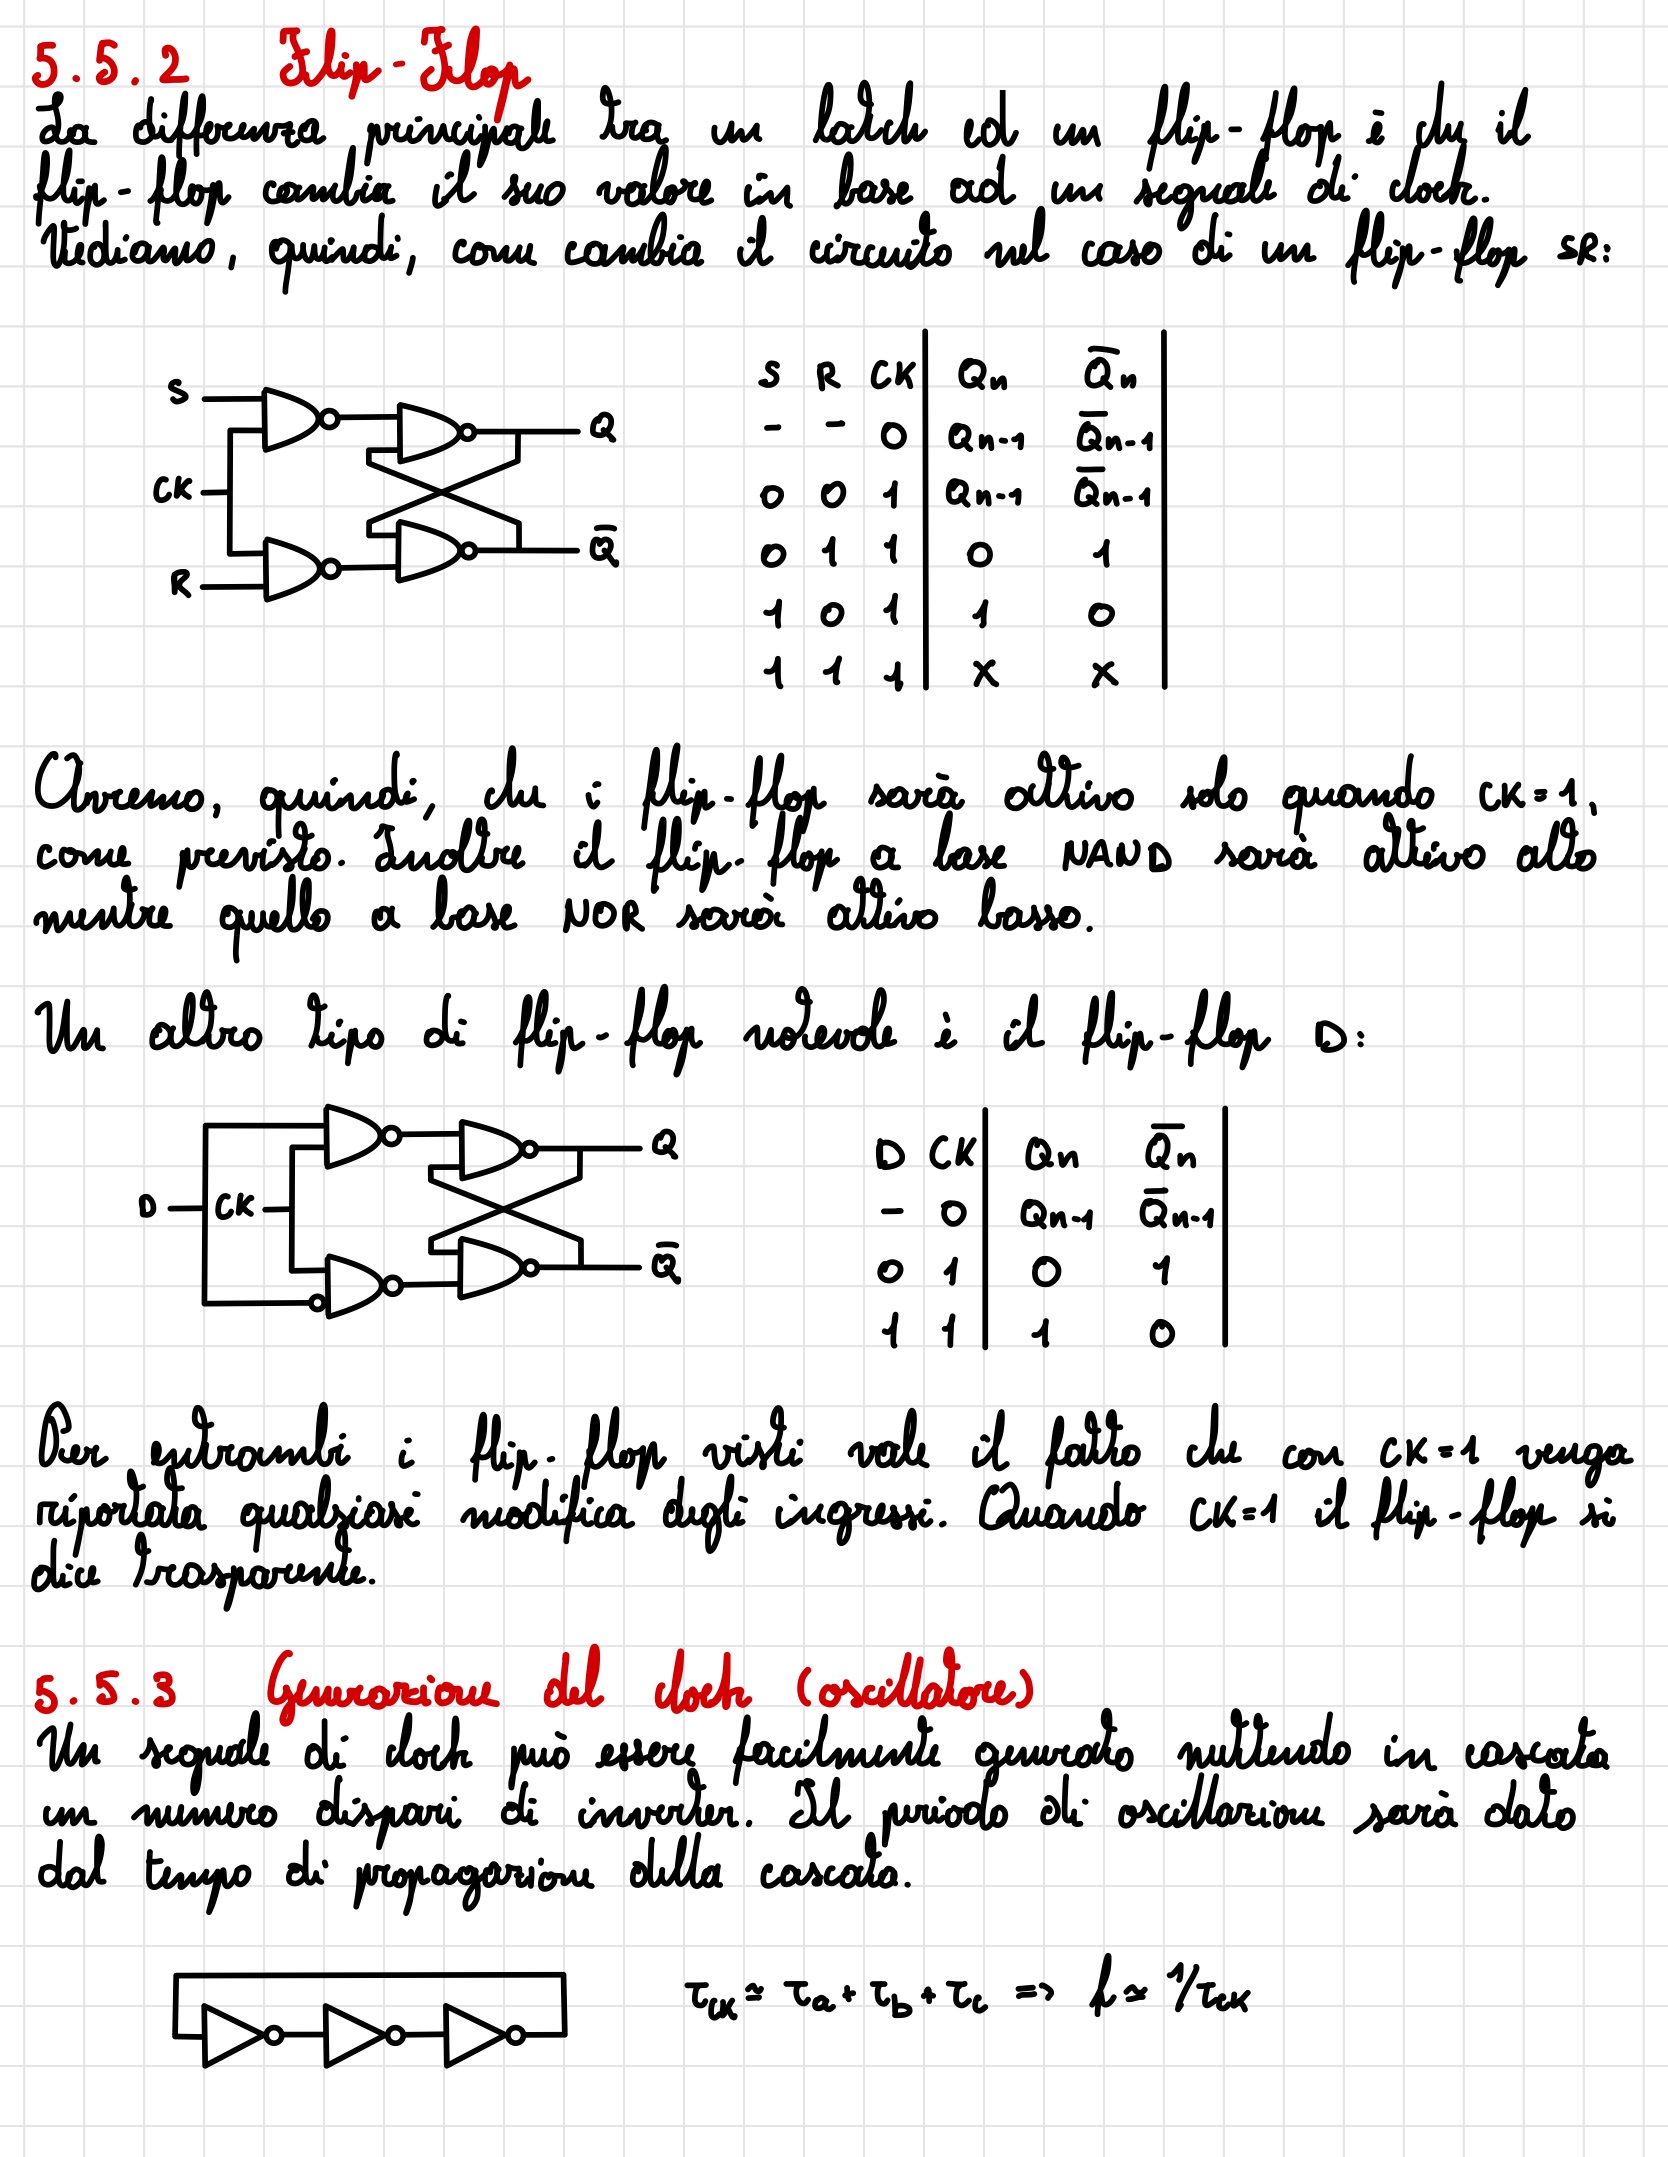 5.5.2 Flip-Flop
La differenza principale tra un latch ed un flip-flop è che il
flip-flop cambia il suo valore in base ad un segnale di clock.
Vediamo, quindi, come cambia il circuito nel caso di un flip-flop SR:
S R CK Qn Q̅n
S
- - 0 Qn-1 Q̅n-1
Q
CK
0 0 1 Qn-1 Q̅n-1
0 1 1 0 1
Q̅
R
1 0 1 1 0
1 1 1 X X
Avremo, quindi, che i flip-flop sarà attivo solo quando CK=1,
come previsto. Inoltre il flip-flop a base NAND sarà attivo alto
mentre quello a base NOR sarà attivo basso.
Un altro tipo di flip-flop notevole è il flip-flop D:
Q
D CK Qn Q̅n
D CK
- 0 Qn-1 Q̅n-1
Q̅
0 1 0 1
1 1 1 0
Per entrambi i flip-flop visti vale il fatto che con CK=1 venga
riportata qualsiasi modifica degli ingressi. Quando CK=1 il flip-flop si
dice trasparente.
5.5.3 Generazione del clock (oscillatore)
Un segnale di clock può essere facilmente generato mettendo in cascata
un numero dispari di inverter. Il periodo di oscillazione sarà dato
dal tempo di propagazione della cascata.
τCK ≃ τa + τb + τc => f ≃ 1/τCK